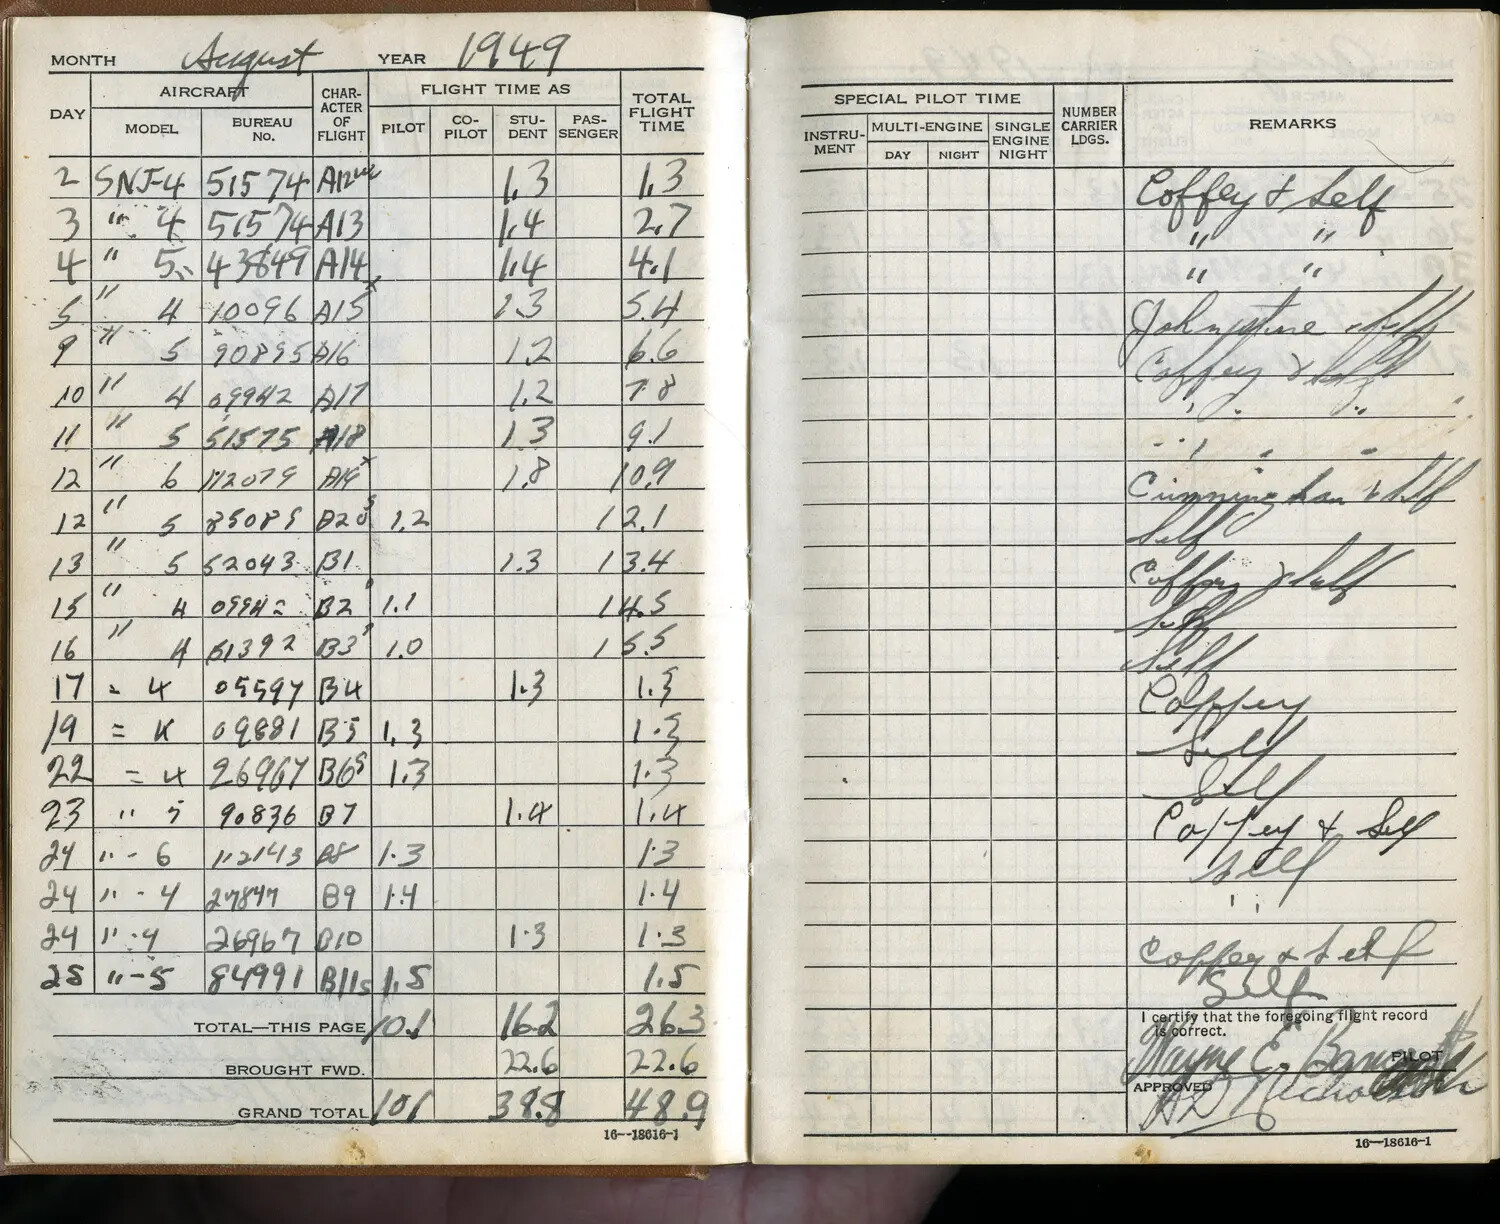 MONTH August YEAR 1949
DAY AIRCRAFT CHAR-ACTER OF FLIGHT FLIGHT TIME AS TOTAL FLIGHT TIME
MODEL BUREAU No. PILOT CO-PILOT STU-DENT PAS-SENGER
2 SNJ-4 51574 A12 1.3 1.3
3 " 4 51574 A13 1.4 2.7
4 " 5 43849 A14 1.4 4.1
5 " 4 10096 A15x 1.3 5.4
9 " 5 90895 A16 1.2 6.6
10 " 4 09942 A17 1.2 7.8
11 " 5 51575 A18 1.3 9.1
12 " 6 112079 A19x 1.8 10.9
12 " 5 85085 A20s 1.2 12.1
13 " 5 52043 B1 1.3 13.4
15 " 4 09942 B2s 1.1 14.5
16 " 4 51392 B3s 1.0 15.5
17 = 4 05597 B4 1.3 1.3
19 = 4 09881 B5 1.3 1.3
22 = 4 26967 B6s 1.3 1.3
23 " 5 90836 B7 1.4 1.4
24 " - 6 112143 B8 1.3 1.3
24 " - 4 27847 B9 1.4 1.4
24 " - 4 26967 B10 1.3 1.3
25 " - 5 84991 B11s 1.5 1.5
TOTAL—THIS PAGE 10.1 16.2 26.3
BROUGHT FWD. 22.6 22.6
GRAND TOTAL 10.1 38.8 48.9
16—18616-1
SPECIAL PILOT TIME NUMBER CARRIER LDGS. REMARKS
INSTRU-MENT MULTI-ENGINE SINGLE ENGINE NIGHT
DAY NIGHT
Coffey & Self
" "
" "
Johnstone & Self
Coffey & Self
" "
" "
Cunningham & Self
Self
Coffey & Self
Self
Self
Coffey
Self
Self
Coffey & Self
Self
"
Coffey & Self
Self
I certify that the foregoing flight record is correct.
Wayne E. PILOT
APPROVED
16—18616-1